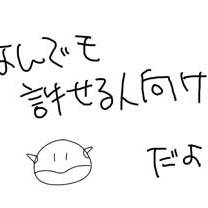 なんでも
許せる人向け
だよ